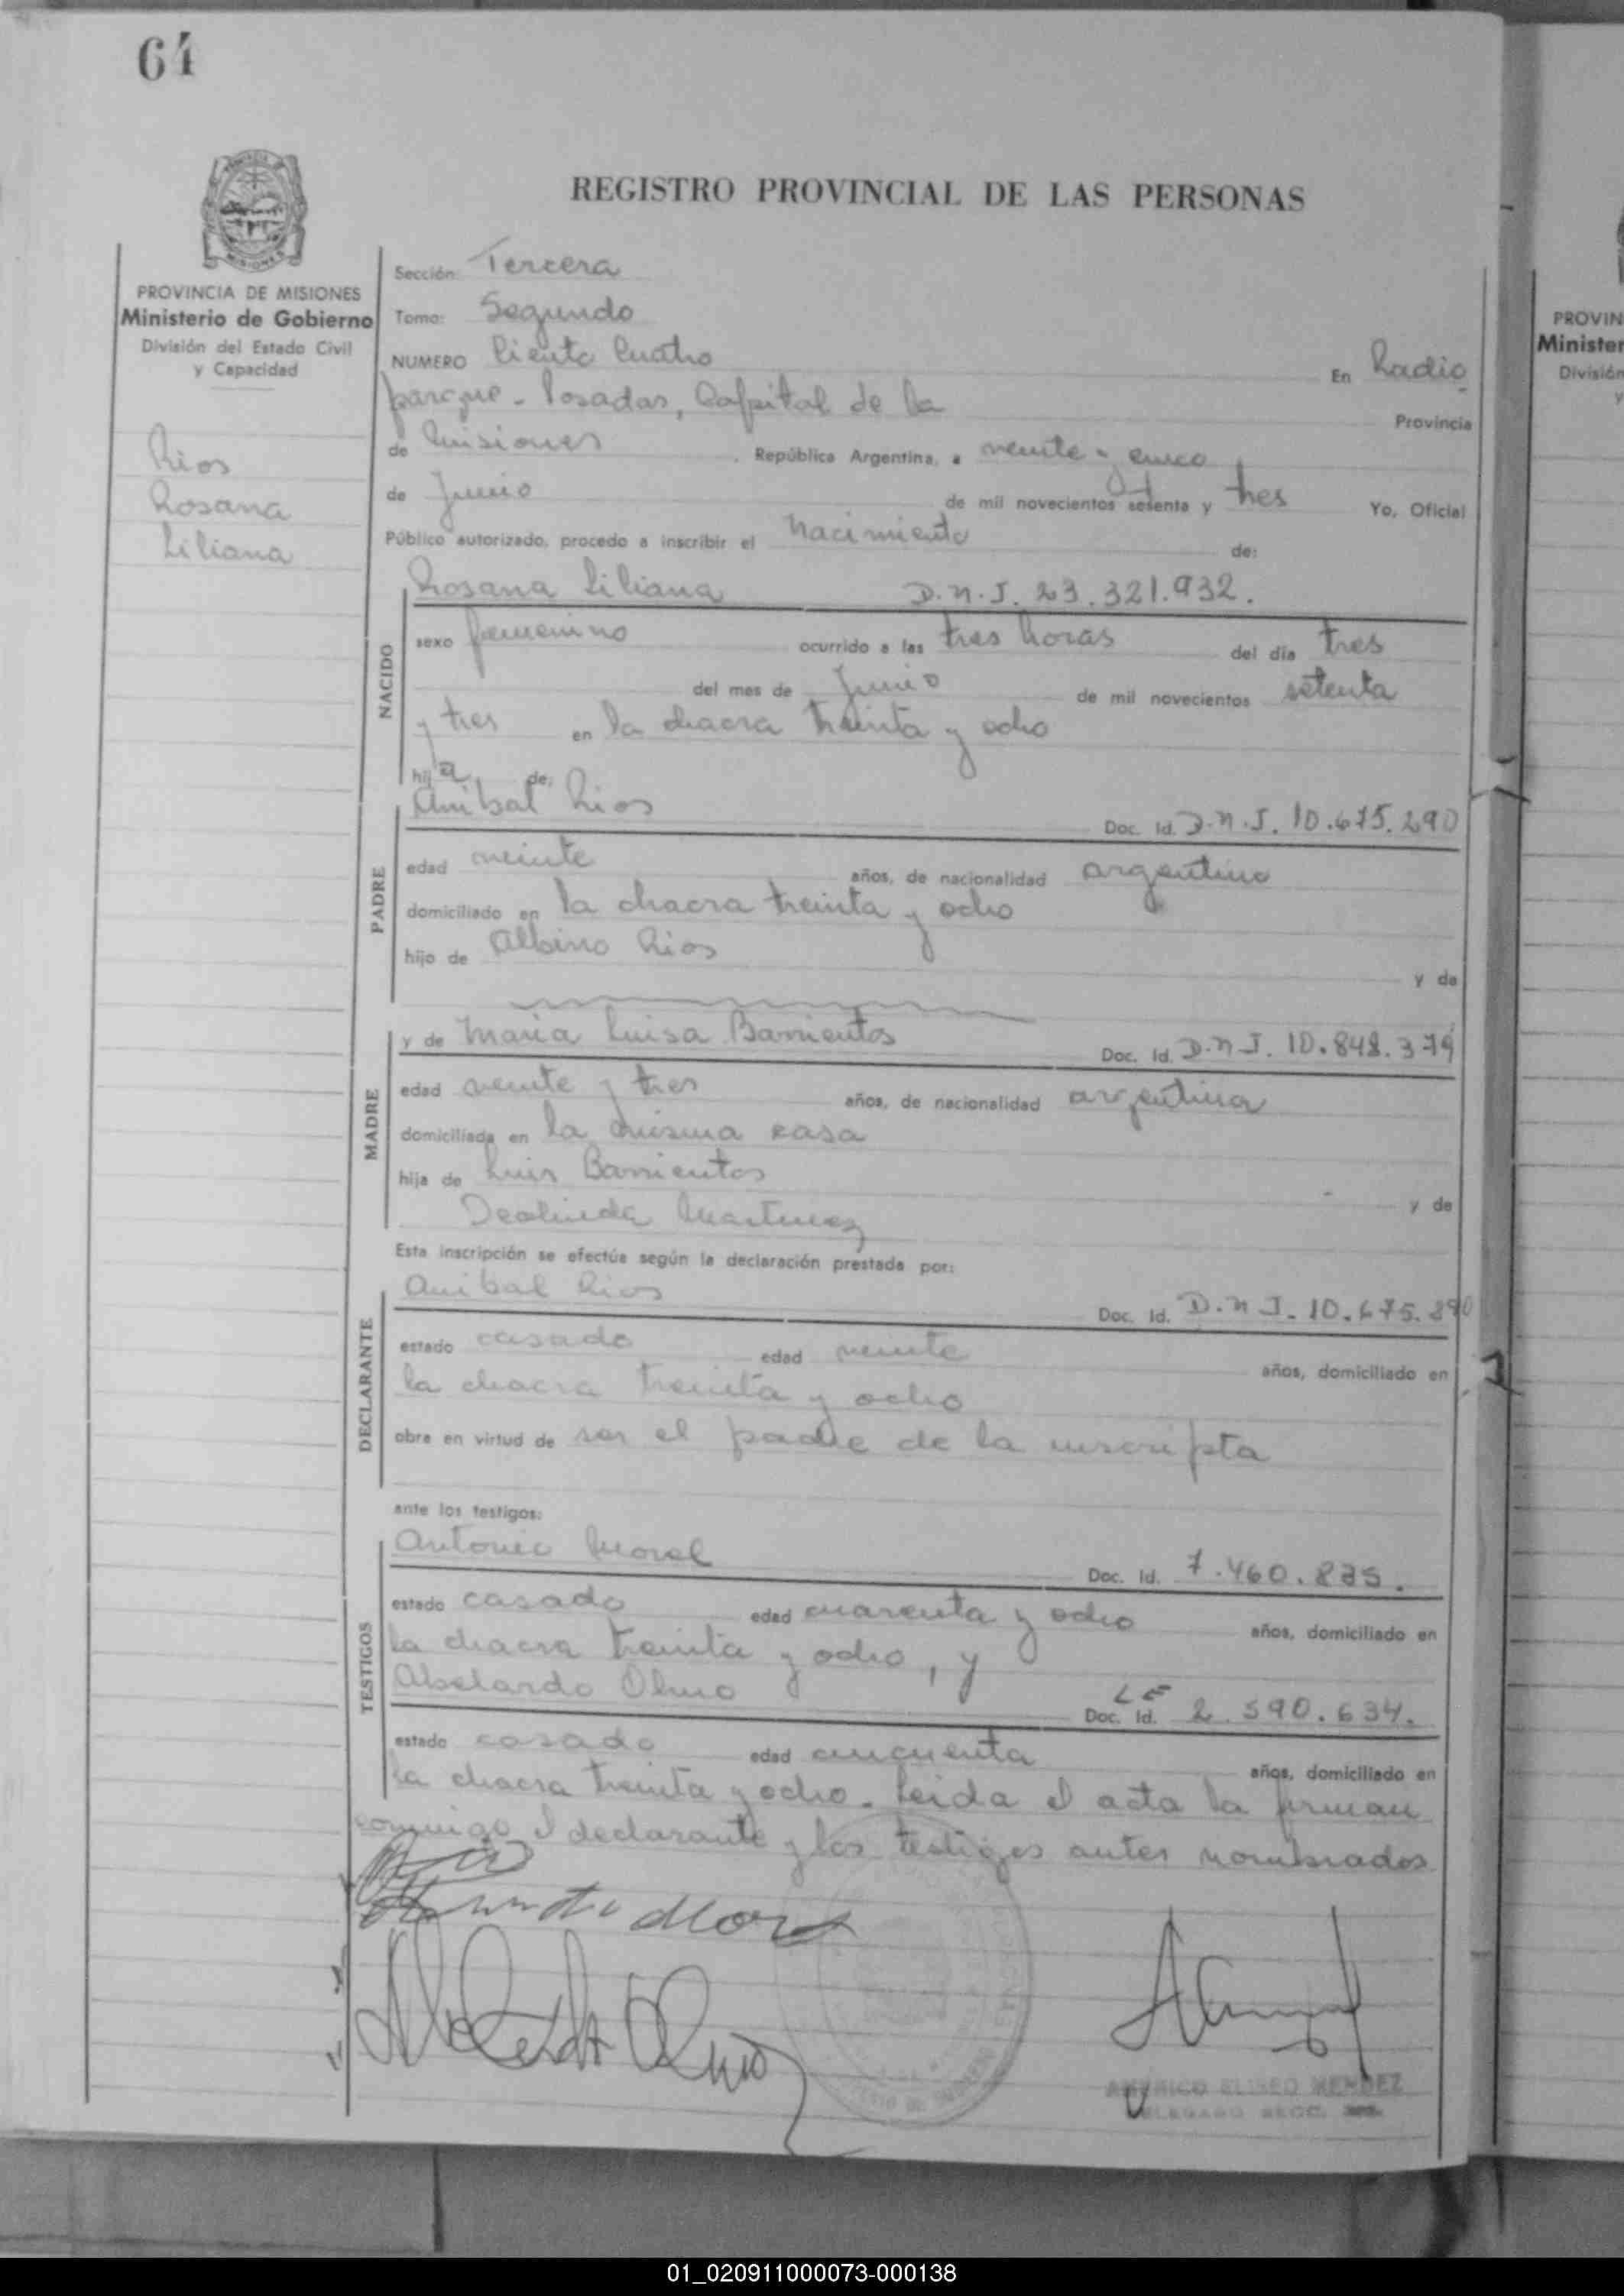 64
REGISTRO PROVINCIAL DE LAS PERSONAS
MISIONES
PROVINCIA DE MISIONES
Ministerio de Gobierno
División del Estado Civil
y Capacidad
Rios
Rosana
Liliana
Sección: Tercera
Tomo: Segundo
NUMERO Ciento Cuatro En Radio
parque - Posadas, Capital de la Provincia
de Misiones , República Argentina, a veinte y cinco
de Junio de mil novecientos setenta y tres Yo, Oficial
Público autorizado, procedo a inscribir el Nacimiento de:
Rosana Liliana D.N.I. 23.321.932.
NACIDO
sexo femenino ocurrido a las tres horas del día tres
del mes de Junio de mil novecientos setenta
y tres en la chacra treinta y ocho
hija de:
PADRE
Anibal Rios Doc. Id. D.N.I. 10.675.290
edad veinte años, de nacionalidad argentino
domiciliado en la chacra treinta y ocho
hijo de Albino Rios y de
MADRE
y de Maria Luisa Barrientos Doc. Id. D.N.I. 10.848.379
edad veinte y tres años, de nacionalidad argentina
domiciliada en la misma casa
hija de Luis Barrientos y de
Deolinda Martinez
Esta inscripción se efectúa según la declaración prestada por:
DECLARANTE
Anibal Rios Doc. Id. D.N.I. 10.675.290
estado casado edad veinte años, domiciliado en
la chacra treinta y ocho
obra en virtud de ser el padre de la inscripta
ante los testigos:
TESTIGOS
Antonio Morel Doc. Id. 7.460.835.
estado casado edad cuarenta y ocho años, domiciliado en
la chacra treinta y ocho, y
Abelardo Olmo LE Doc. Id. 2.590.634.
estado casado edad cincuenta años, domiciliado en
la chacra treinta y ocho. Leida el acta la firman
conmigo el declarante y los testigos antes nombrados
AMERICO ELISEO MENDEZ
DELEGADO SECC.
PROVIN
Minister
División
y
01_020911000073-000138